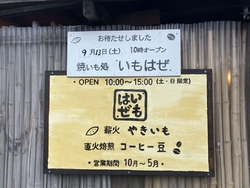 お待たせしました
9月13日(土) 10時オープン
焼いも処 "いもはぜ"
・OPEN 10:00〜15:00 (土・日限定)
いも
はぜ
薪火 やきいも
直火焙煎 コーヒー豆
・営業期間 10月〜5月・